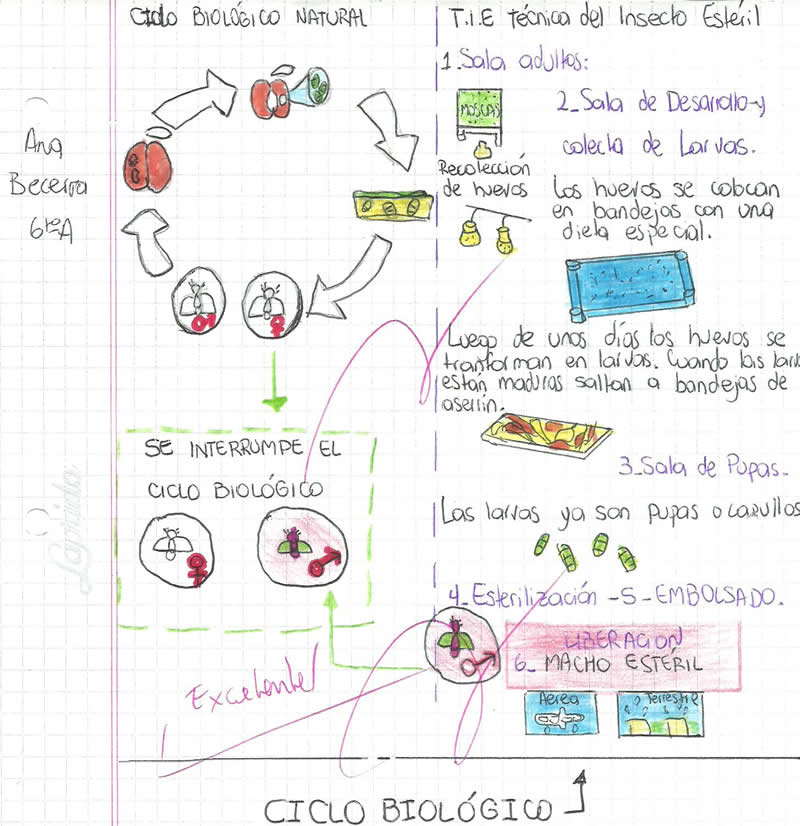 Ana
Becerra
6toA
Ciclo BIOLÓGICO NATURAL
SE INTERRUMPE EL
CICLO BIOLÓGICO
Excelente!
T.I.E técnica del Insecto Estéril
1_Sala adultos:
MOSCAS
2_Sala de Desarrollo-y
colecta de Larvas.
Recolección
de huevos
Los huevos se colocan
en bandejas con una
dieta especial.
Luego de unos días los huevos se
tranforman en larvas. Cuando las larv
están maduras saltan a bandejas de
aserrín.
3_Sala de Pupas_
Las larvas ya son pupas o capullos
4_Esterilización -5-EMBOLSADO.
LIBERACION
6_ MACHO ESTÉRIL
Aerea
Terrestre
CICLO BIOLÓGICO
Laprida